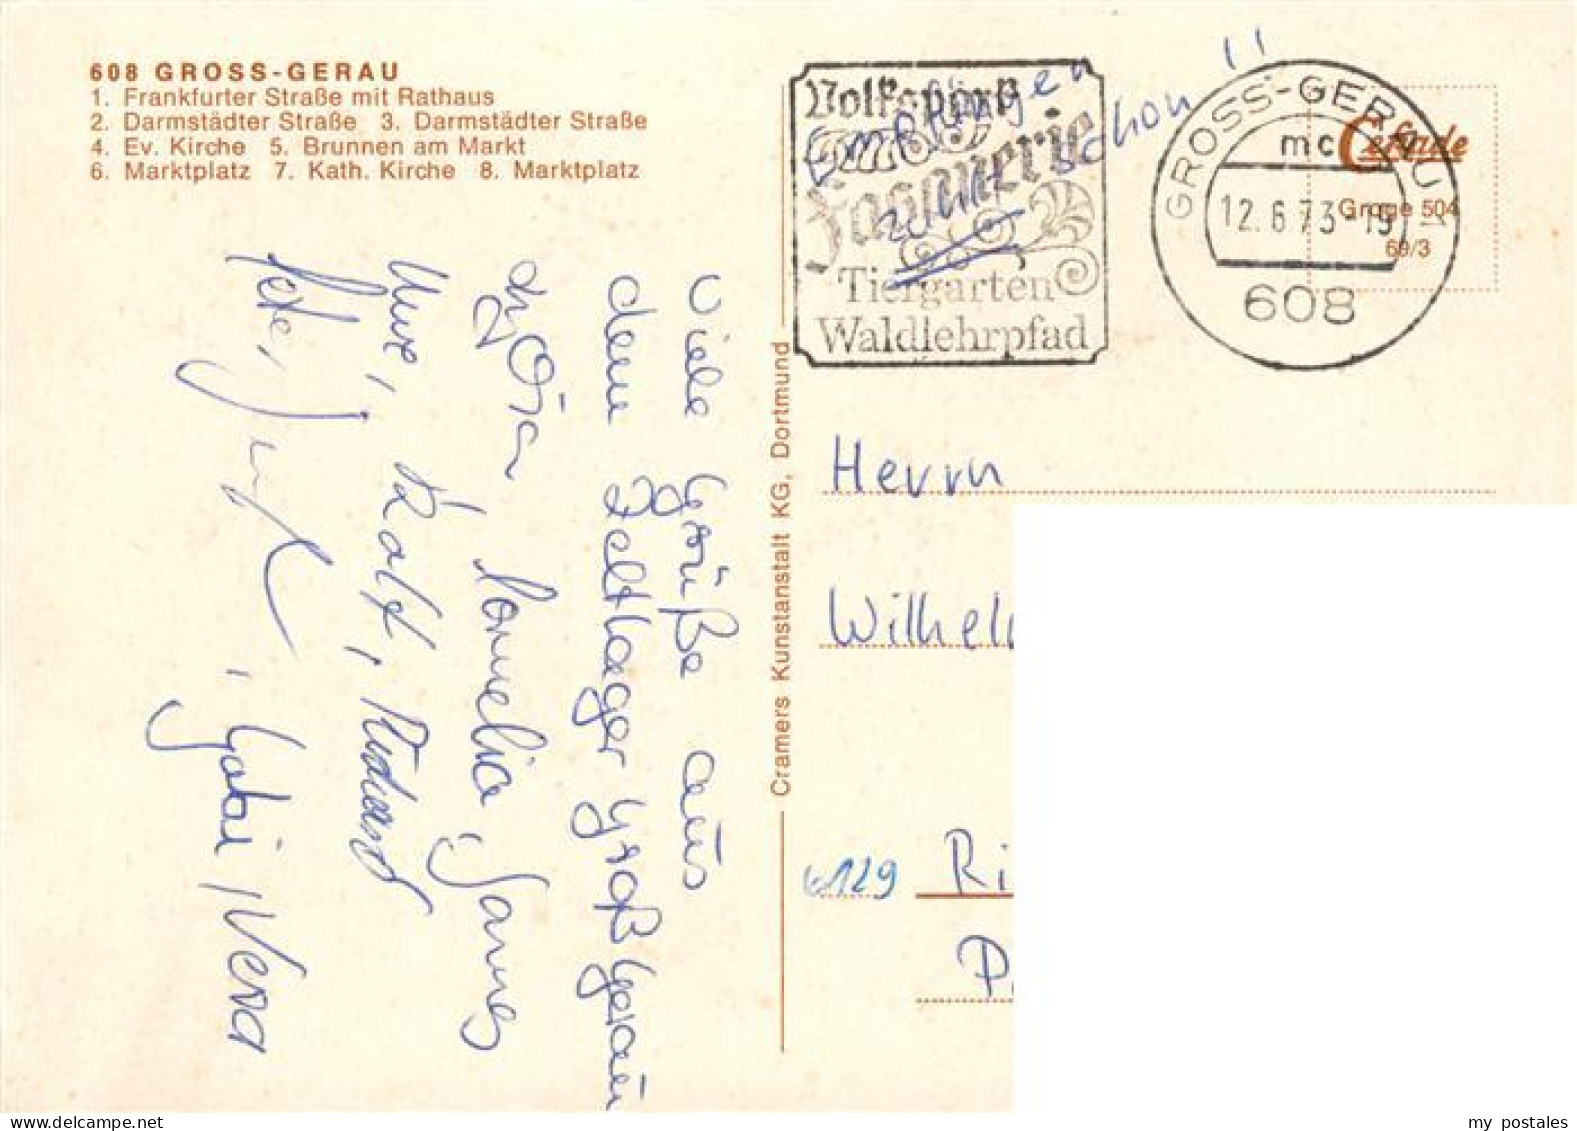 608 GROSS-GERAU
1. Frankfurter Straße mit Rathaus
2. Darmstädter Straße 3. Darmstädter Straße
4. Ev. Kirche 5. Brunnen am Markt
6. Marktplatz 7. Kath. Kirche 8. Marktplatz
Volkspark
Fasanerie
Tiergarten
Waldlehrpfad
Empfangen
schon !!
GROSS-GERAU 1
mc
12.6.73-19
608
Cekade
Groge 504
69/3
Viele Grüße aus
dem Zeltlager Groß Gerau
Cornelia,
Uwe, Ralf,
Pete,
, Gabi, Vera
Cramers Kunstanstalt KG, Dortmund
Herrn
Wilhel
6129 Ri
my postales